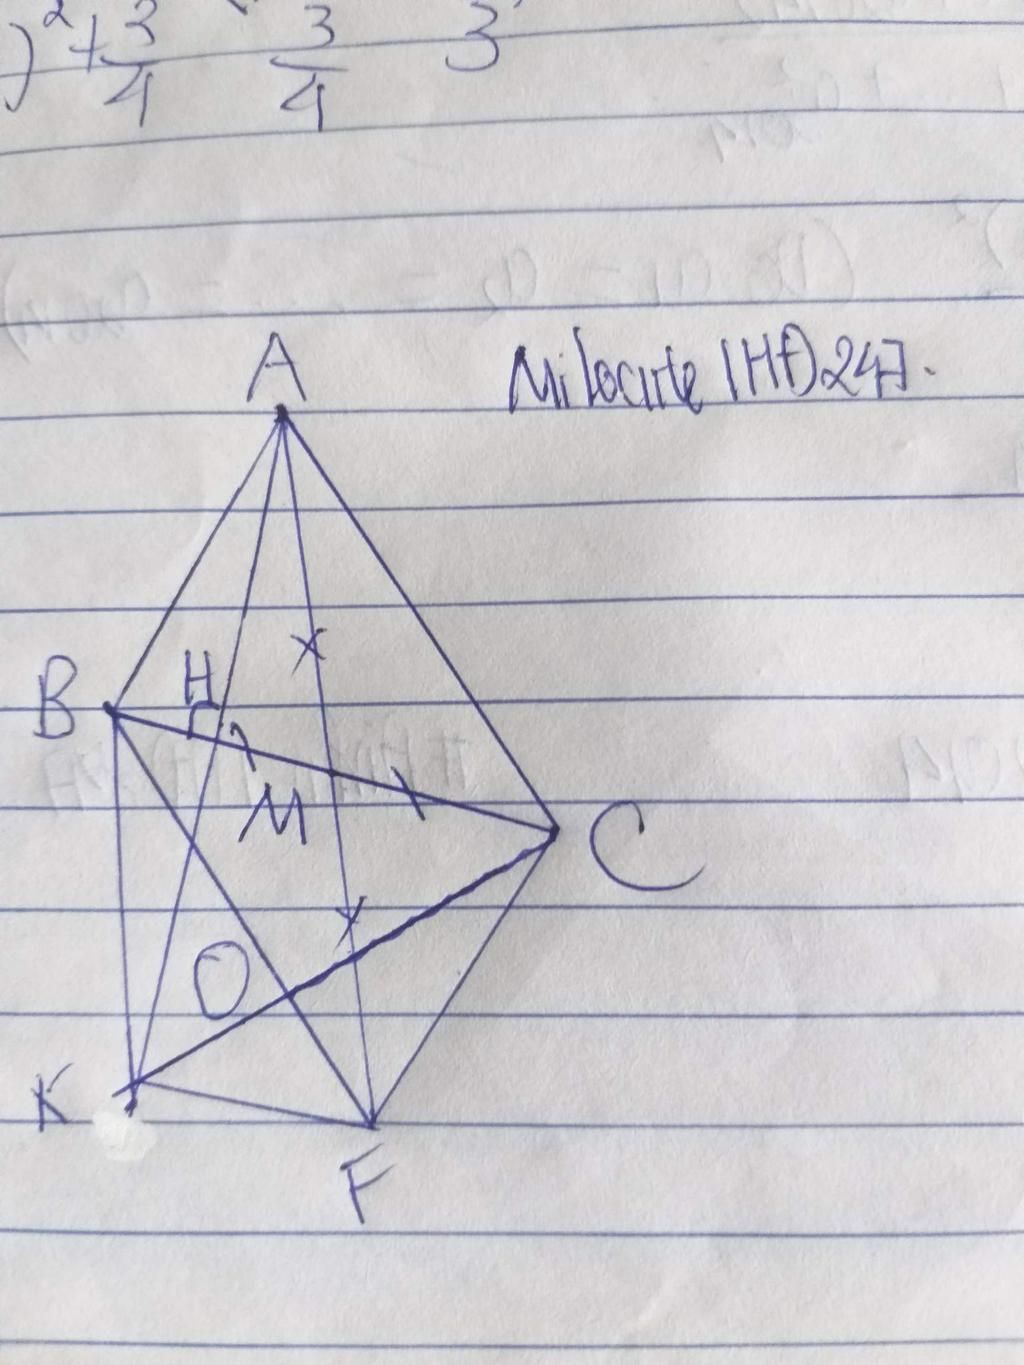 )² + 3/4   3/4   3
A
Milocute (Hf) 247.
B
H
M
C
O
K
F